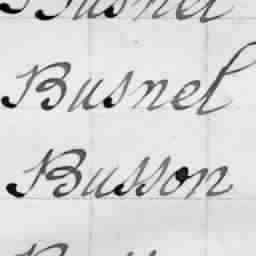 Busnel
Busnel
Busson